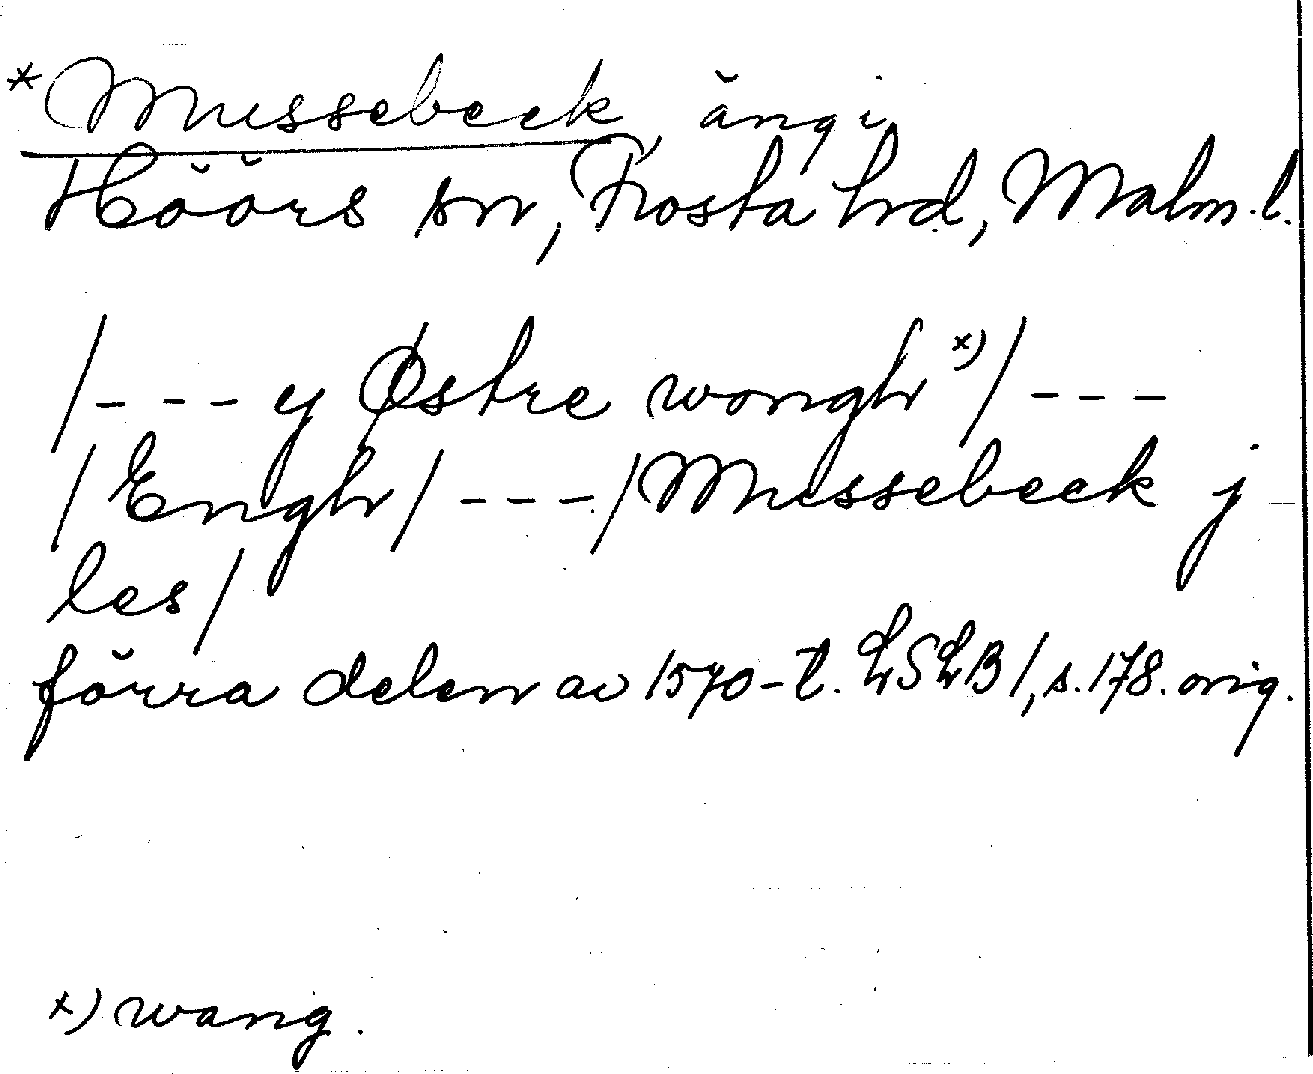 *Mussebeck, äng i
Höörs sn, Frosta hrd, Malm.l.
/--- y Østre wongh x)/ ---
/Engh/ ---/Mussebeck j
les/
förra delen av 1570-t. LSLB 1, s. 178. orig.
x) wang.